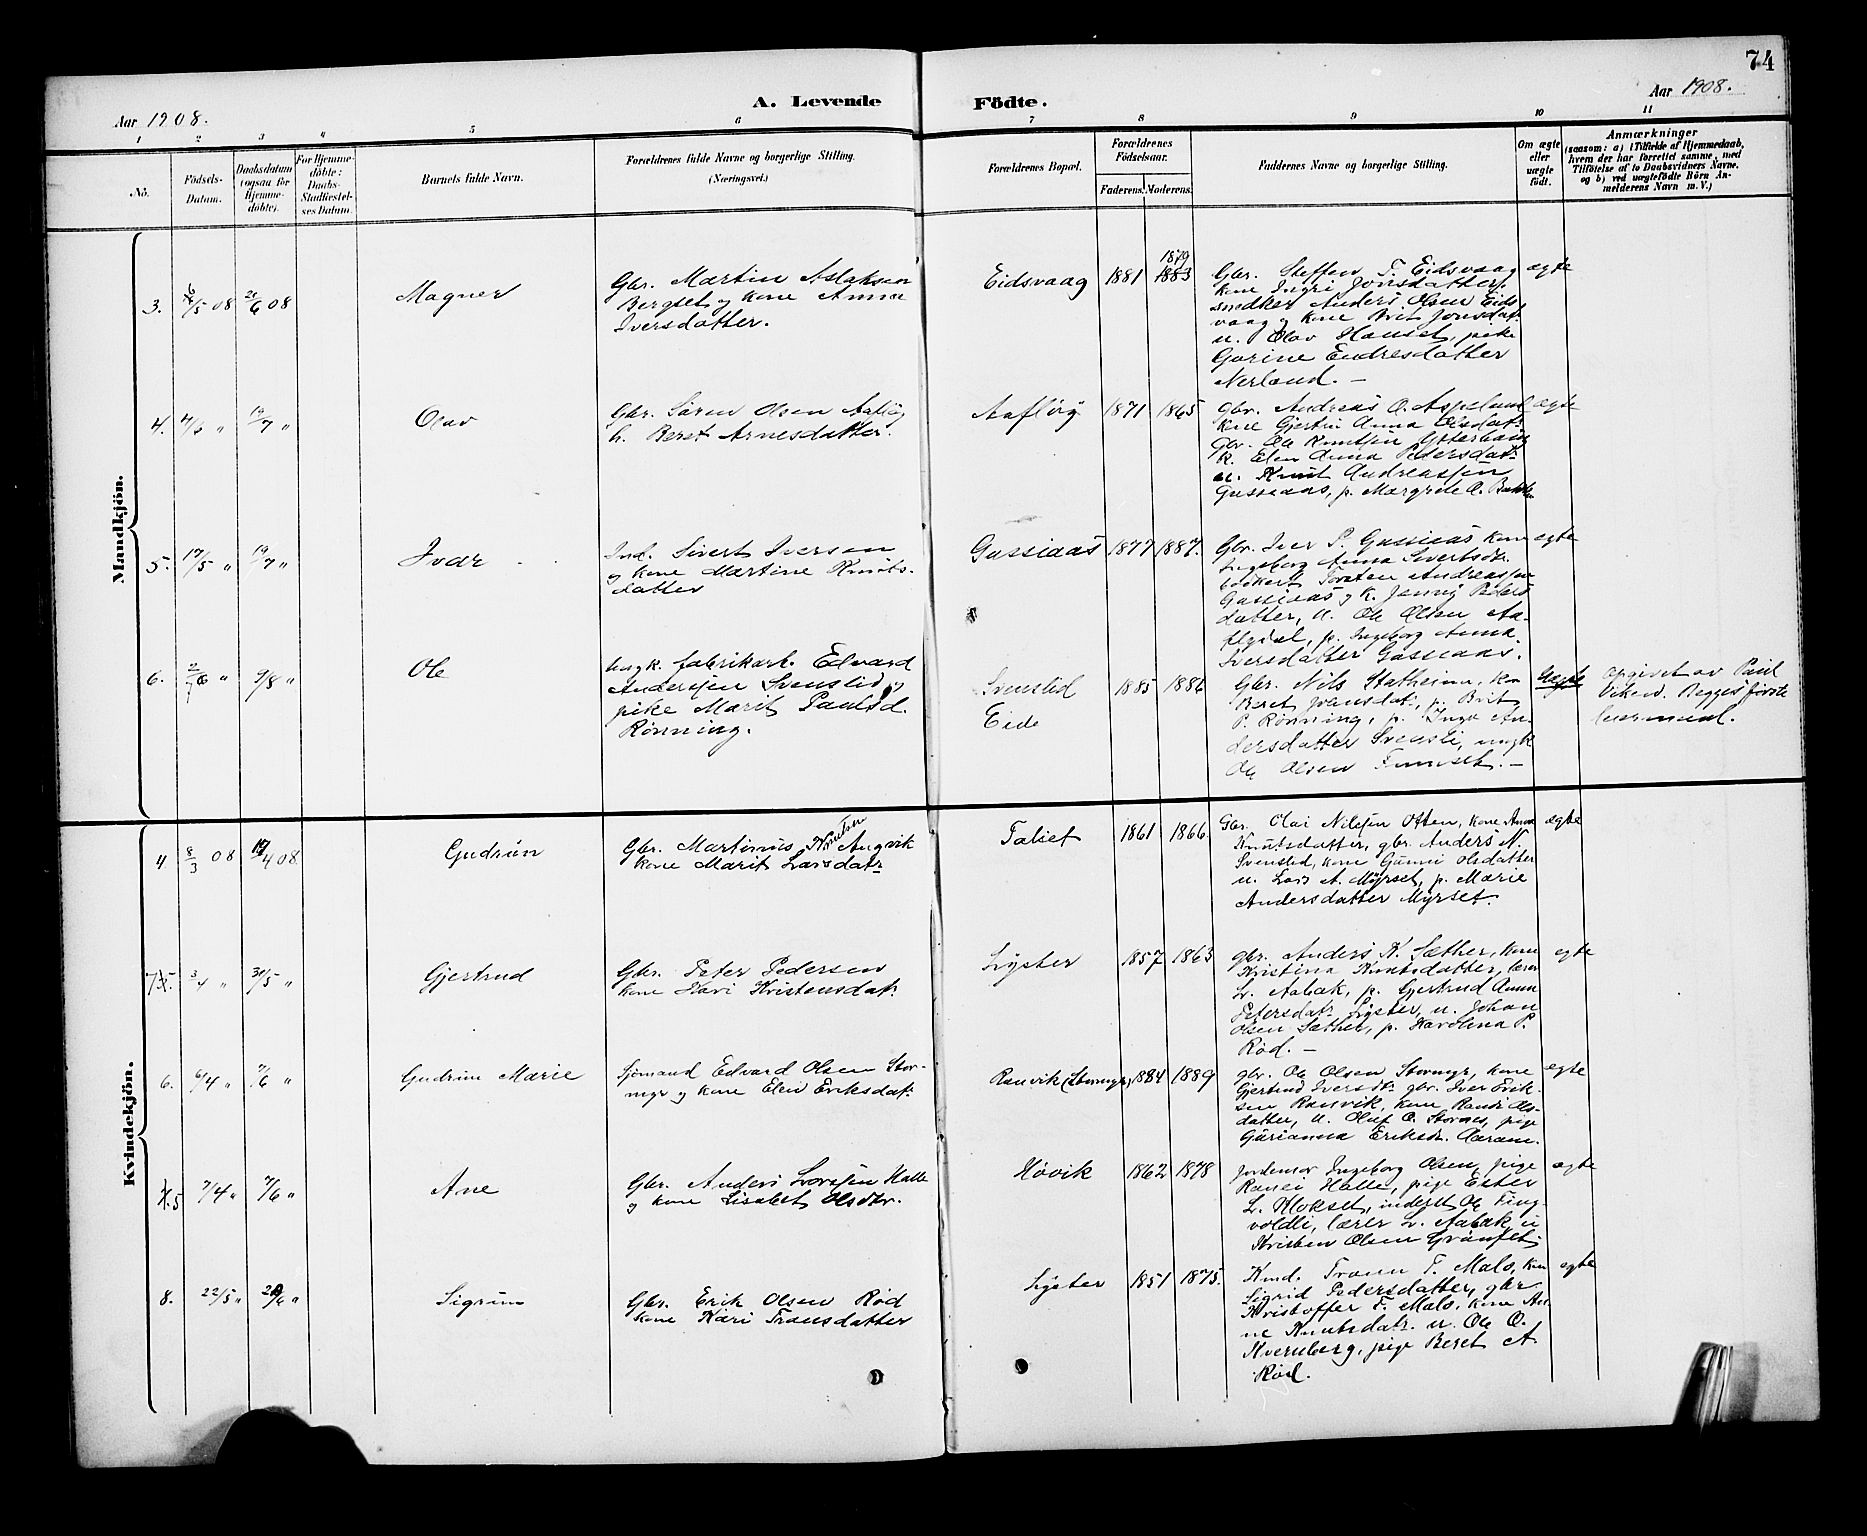 74
A. Levende Födte.
Aar 1908.
Aar 1908.
1 2 3 4 5 6 7 8 9 10 11
No.
Födsels-Datum.
Daabsdatum (ogsaa for Hjemme-döbte).
For Hjemme-döbte: Daabs-Stadfæstel-ses Datum.
Barnets fulde Navn.
Forældrenes fulde Navne og borgerlige Stilling.
(Næringsvei.)
Forældrenes Bopæl.
Forældrenes Födselsaar.
Faderens. Moderens.
Faddernes Navne og borgerlige Stilling.
Om ægte eller uægte födt.
Anmærkninger
(saasom: a) i Tilfælde af Hjemmedaab,
hvem der har forrettet samme, med
Tilföielse af to Daabsvidners Navne.
og b) ved uægtefödte Börn An-
melderens Navn m. V.)
Mandkjön.
3. 6/5 08 21/6 08
Magner
Gbr. Martin Aslaksen
Bergset og kone Anna
Iversdatter.
Eidsvaag 1881 1883 1879
Gbr. Steffen T. Eidsvaag
kone Ingri Jonsdatter,
snedker Anders Olsen Eids
vaag og kone Brit Jonsdat.
u. Olav Hauset, pike
Gurine Endresdatter
Nerland. —
ægte
4. 4/6 „ 19/7 „
Olav
Gbr. Sören Olsen Aaflöy
h. Beret Arnesdatter.
Aaflöy 1871 1865
Gbr. Andreas O. Aspelund
kone Gjertru Anna Olsdat.
Gbr. Ole Knutsen Ytterhaug
k. Elen Anna Petersdat.
u. Knut Andreassen
Gussiaas, p. Margrete O.
ægte
5. 17/5 „ 19/7 „
Ivar
Ind. Sivert Iversen
og kone Martine Knuts-
datter
Gussiaas 1877 1887.
Gbr. Iver P. Gussiaas kone
Ingeborg Anna Sivertsdr.
Torsten Andreassen
Gussiaas og k. Jenny Peders
datter, u. Ole Olsen Aa-
flydal, p. Ingeborg Anna
Iversdatter Gussiaas.
ægte
6. 2/6 „ 9/8 „
Ole
Ungk. fabrikarb. Edvard
Andersen Svenslid og
pike Marit Paulsd.
Rönning.
Svenslid
Eide
1885 1886
Gbr. Nils Statheim, kone
Beret Jonsdat., p. Brit
P. Rönning, p. Inga An-
dersdatter Svensli, ungk
Ole Olsen
Uegte
opgivet av Paul
Viken. Begges förste
leiermaal.
Kvindekjön.
4 8/3 08 19/4 08
Gudrun
Gbr. Martinus Knutsen Angvik
kone Marit Larsdatr
Talset 1861 1866
Gbr. Olai Nilsen Otten, kone Anna
Knutsdatter, gbr. Anders N.
Svenslid, kone Gunni Olsdatter
u. Lars A. Myrset, p. Marie
Andersdatter Myrset.
ægte
7 5. 3/4 „ 31/5 „
Gjertrud
Gbr. Peter Pedersen
kone Kari Kristensdat.
Lyster 1857 1863
gbr. Anders K. Sæther, kone
Kristina Knutsdatter, lærer
L. Aabak, p. Gjertrud Anna
Petersdat. Lyster, u. Johan
Olsen Sæther, p. Karolina P.
Röd. —
egte
6. 6/4 „ 7/6 „
Gudrun Marie
Sjömand Edvard Olsen Stor-
myr og kone Elen Eriksdat.
Ranvik (Stormyr) 1884 1889
gbr. Ole Olsen Stormyr, kone
Gjertrud Iversdr. gbr. Iver Erik-
sen Ranvik, kone Randi Ols-
datter, u. Oluf O. Stornes, pige
Gurianna Eriksdr.
ægte
5 7/4 „ 7/6 „
Ane
Gbr. Anders Larssen Halle
og kone Lisabet Olsdtr.
Hövik 1862 1878
Jordemor Ingeborg Olsen, pige
Ranei Halle, pige Ester
L. Klokset, inderst Ole Ting-
voldli, lærer L. Aabak, u
Kristen Olsen
ægte
8. 22/5 „ /6 „
Sigrun
Gbr. Erik Olsen Röd
kone Kari Transdatter
Lyster 1851 1875.
Kmd. Tron T. Malo, kone
Sigrid Pedersdatter, gbr
Kristoffer F. Malo, kone An-
ne Knutsdatr. u. Ole O.
Kvernberg, pige Beret A
Röd.
egte